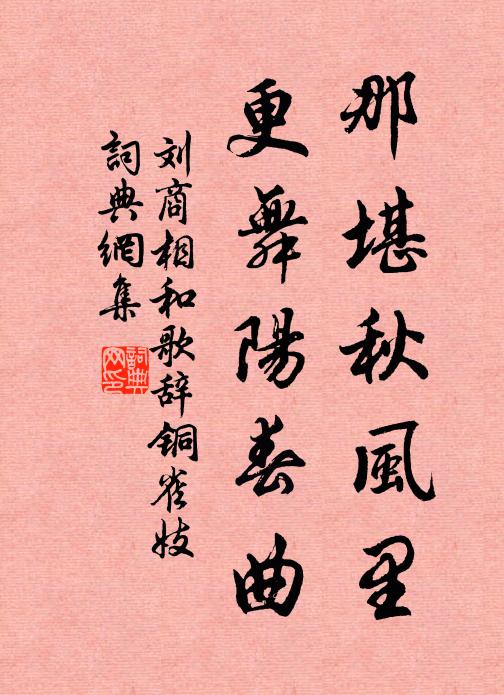 那堪秋風里
更舞陽春曲
刘商相和歌辞铜雀妓
詞典網集
詞典網印